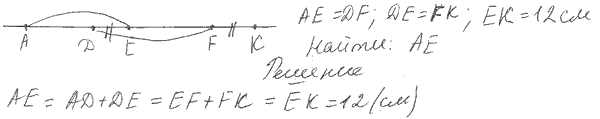 AE = DF; DE = FK; EK = 12 см
A D E F K
Найти: AE
Решение
AE = AD + DE = EF + FK = EK = 12 (см)